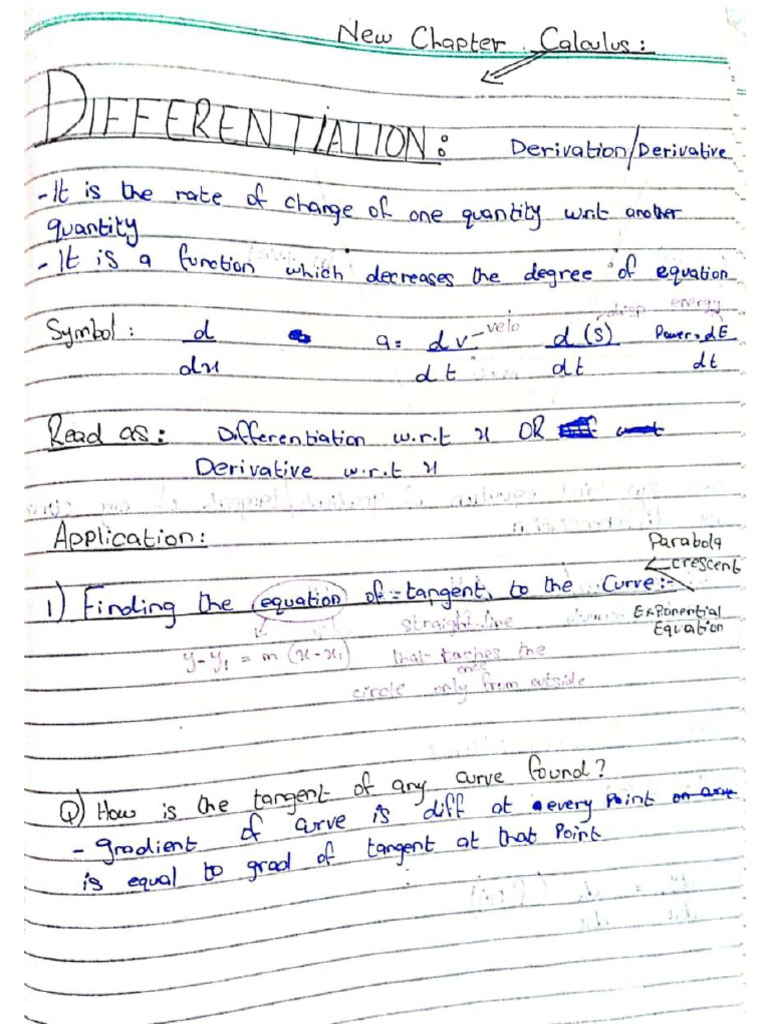 New Chapter Calculus:
DIFFERENTIATION: Derivation/Derivative
- It is the rate of change of one quantity wrt another
quantity
- It is a function which decreases the degree of equation
Symbol: d/dx a = dv/dt velo d(S)/dt disp Power = dE/dt energy
Read as: Differentiation w.r.t x OR
Derivative w.r.t x
Application:
Parabola
crescent
1) Finding the equation of = tangent, to the curve:-
Exponential
Equation
straight line
y-y₁ = m (x-x₁) that touches the
once
circle only from outside
Q) How is the tangent of any curve found?
- gradient of curve is diff at every point on are
is equal to grad of tangent at that point